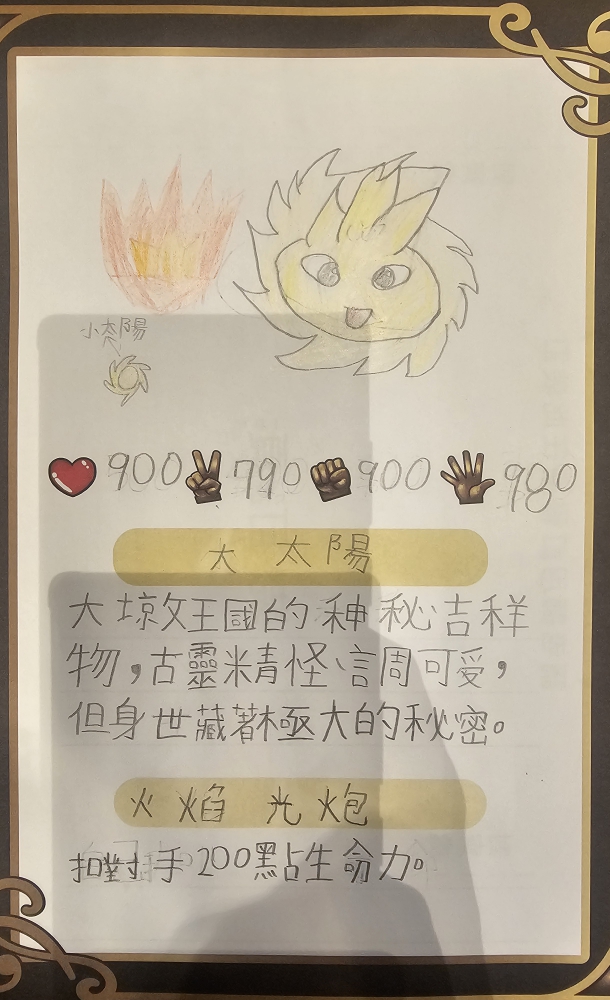 小太陽
900 790 900 980
大 太陽
大 王國的神秘吉祥
物，古靈精怪 周可愛，
但身世藏著極大的秘密。
火焰 光炮
扣對手200點生命力。